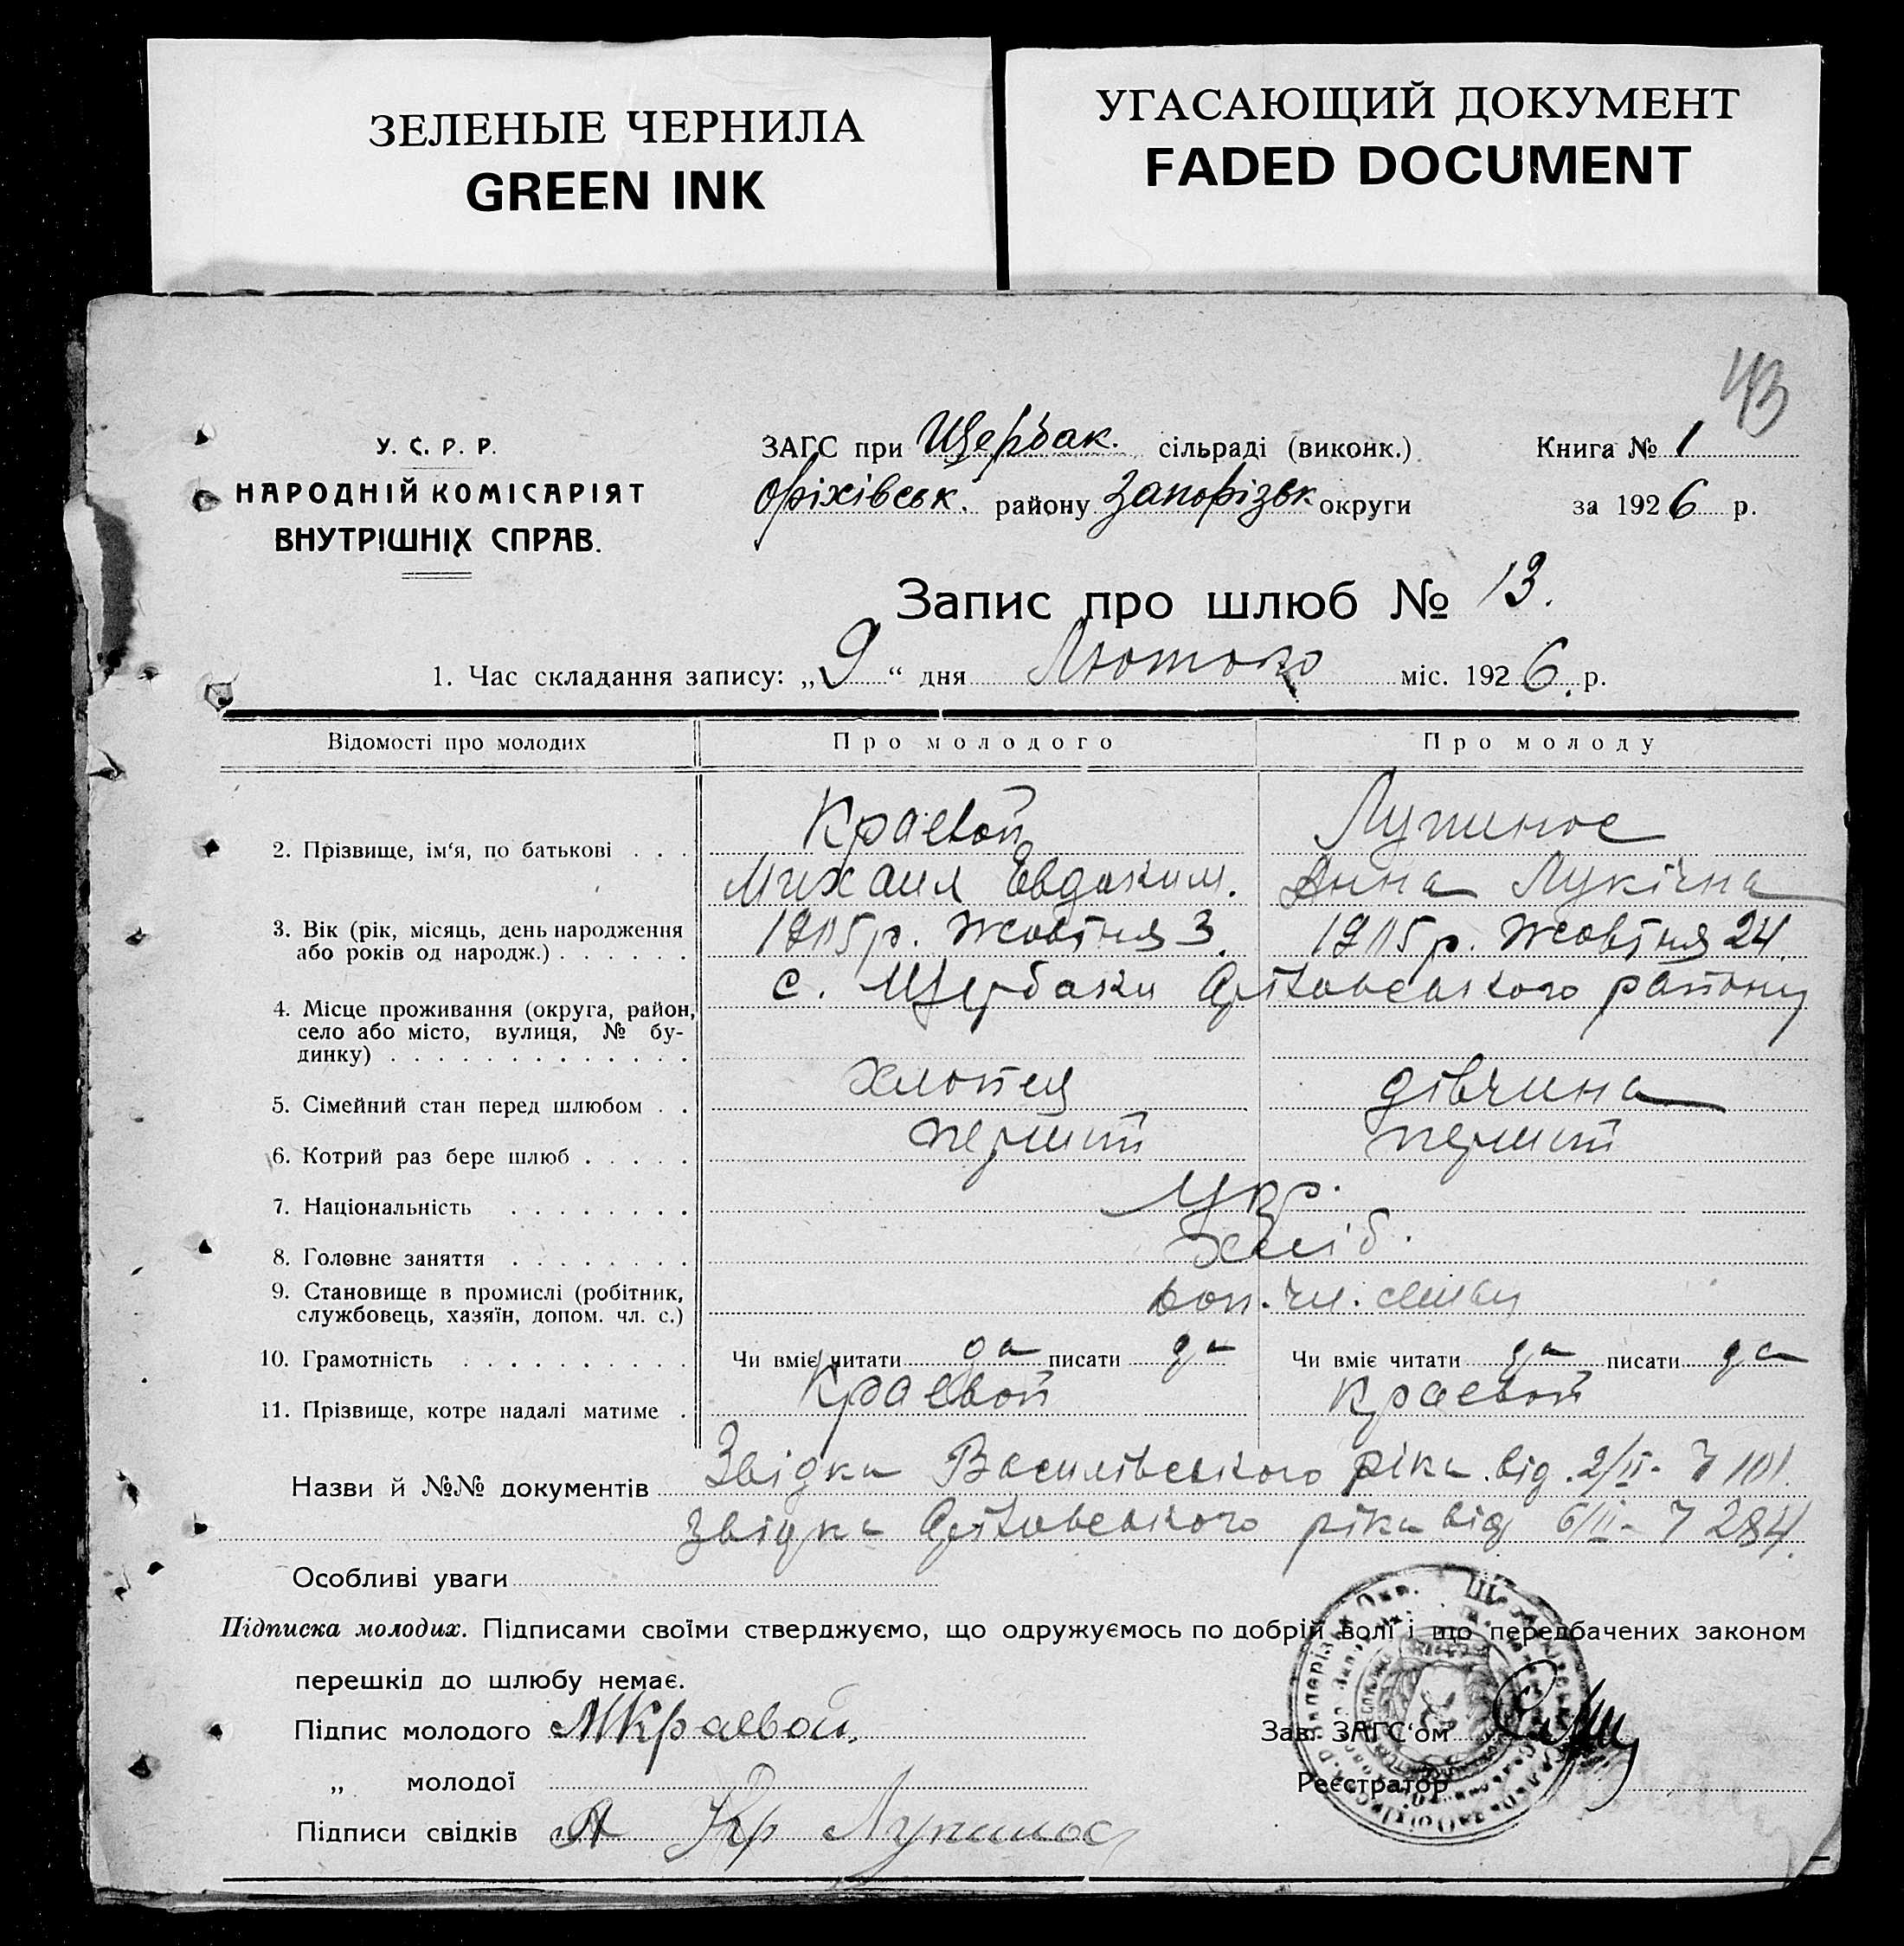 ЗЕЛЕНЫЕ ЧЕРНИЛА
GREEN INK
УГАСАЮЩИЙ ДОКУМЕНТ
FADED DOCUMENT
43
У. С. Р. Р.
НАРОДНІЙ КОМІСАРІЯТ
ВНУТРІШНІХ СПРАВ.
ЗАГС при Щербак. сільраді (виконк.)
Оріхівськ. району Запорізьк округи
Книга № 1
за 1926 р.
Запис про шлюб № 13.
1. Час складання запису: „9“ дня Лютого міс. 1926. р.
Відомості про молодих Про молодого Про молоду
2. Прізвище, ім‘я, по батькові . . . Краевой Лупинос
Михаил Евдоким. Анна Лукічна
3. Вік (рік, місяць, день народження 1905 р. жовтня 3. 1905 р. жовтня 24
або років од народж.) . . . . . .
с. Щербаки Оріховського району
4. Місце проживання (округа, район,
село або місто, вулиця, № бу-
динку) . . . . . . . . . . . . .
5. Сімейний стан перед шлюбом . . хлопец дівчина
6. Котрий раз бере шлюб . . . . . перший перший
7. Національність . . . . . . . . Укр.
8. Головне заняття . . . . . . . . хліб.
9. Становище в промислі (робітник, доп. чл. семьи
службовець, хазяїн, допом. чл. с.)
10. Грамотність . . . . . . . . . . Чи вміє читати да писати да Чи вміє читати да писати да
11. Прізвище, котре надалі матиме . Краевой Краевой
Назви й №№ документів Звідка Василівського ріка. від. 2/II - 101.
Звідка Оріховського ріка від 6/II - 284.
Особливі уваги
Підписка молодих. Підписами своїми стверджуємо, що одружуємось по добрій волі і що передбачених законом
перешкід до шлюбу немає.
Підпис молодого МКраевой.
Зав. ЗАГС‘ом
„ молодої
Реєстратор
Підписи свідків А Кр Лупинос